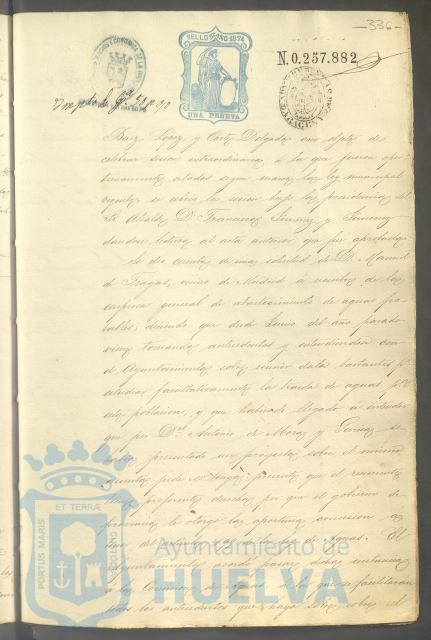 -336-
SELLO 11º AÑO 1874
UNA PESETA
N.0.257.882
Baez, Lopez, y Cortes Delgado con objeto de
celebrar sesion extraordinaria a la que fueron opor-
tunamente citados segun marca la ley municipal
vigente, se abrió la sesion bajo la presidencia del
Sr. Alcalde Dn Francisco Jimenez y Jimenez
dandose lectura al acta anterior que fue aprobada.
Se dio cuenta de una solicitud de D. Manuel
de Fragas, vecino de Madrid a nombre de la
empresa general de abastecimiento de aguas po-
tables, diciendo que desde Junio del año pasado
viene tomando antecedentes y entendiendose con
el Ayuntamiento sobre reunir datos bastantes pa
estudiar facultativamente la traida de aguas pa
esta poblacion, y que habiendo llegado á entender
que por Dn Antonio de Mora y Garcia se
presentado un proyecto sobre el mismo
asunto, pide se tenga presente que el recurrente
tiene preferente derecho por que el gobierno de
provincia le otorgó la oportuna concesion
de aguas. El
Ayuntamiento acordó pasar dicha instancia
a la Comision
todos los antecedentes que haya sobre el
ET TERRÆ
PORTUS MARIS
CUSTODIA
Ayuntamiento de
HUELVA